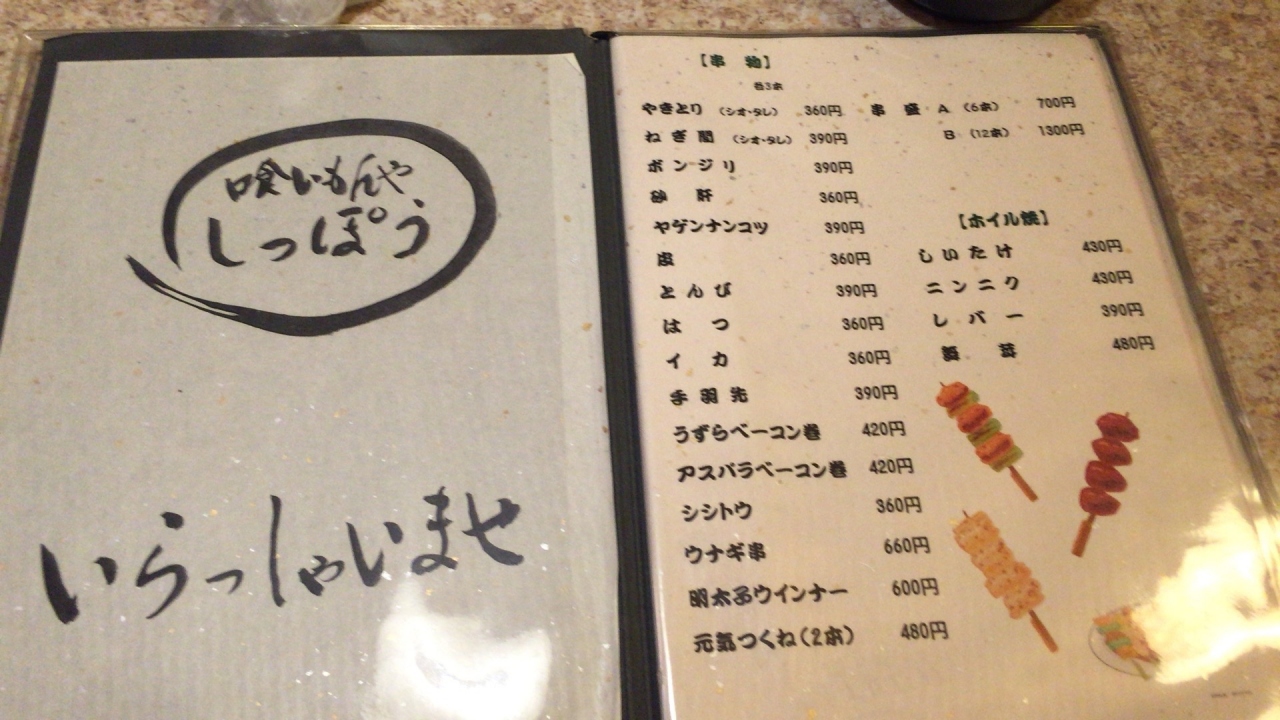 喰いもんや
しっぽう
いらっしゃいませ
【串 物】
各3本
やきとり (シオ・タレ) 360円
ねぎ間 (シオ・タレ) 390円
ボンジリ 390円
砂肝 360円
ヤゲンナンコツ 390円
皮 360円
とんび 390円
はつ 360円
イカ 360円
手羽先 390円
うずらベーコン巻 420円
アスパラベーコン巻 420円
シシトウ 360円
ウナギ串 660円
明太子ウインナー 600円
元気つくね(2本) 480円
串盛 A (6本) 700円
B (12本) 1300円
【ホイル焼】
しいたけ 430円
ニンニク 430円
レバー 390円
480円